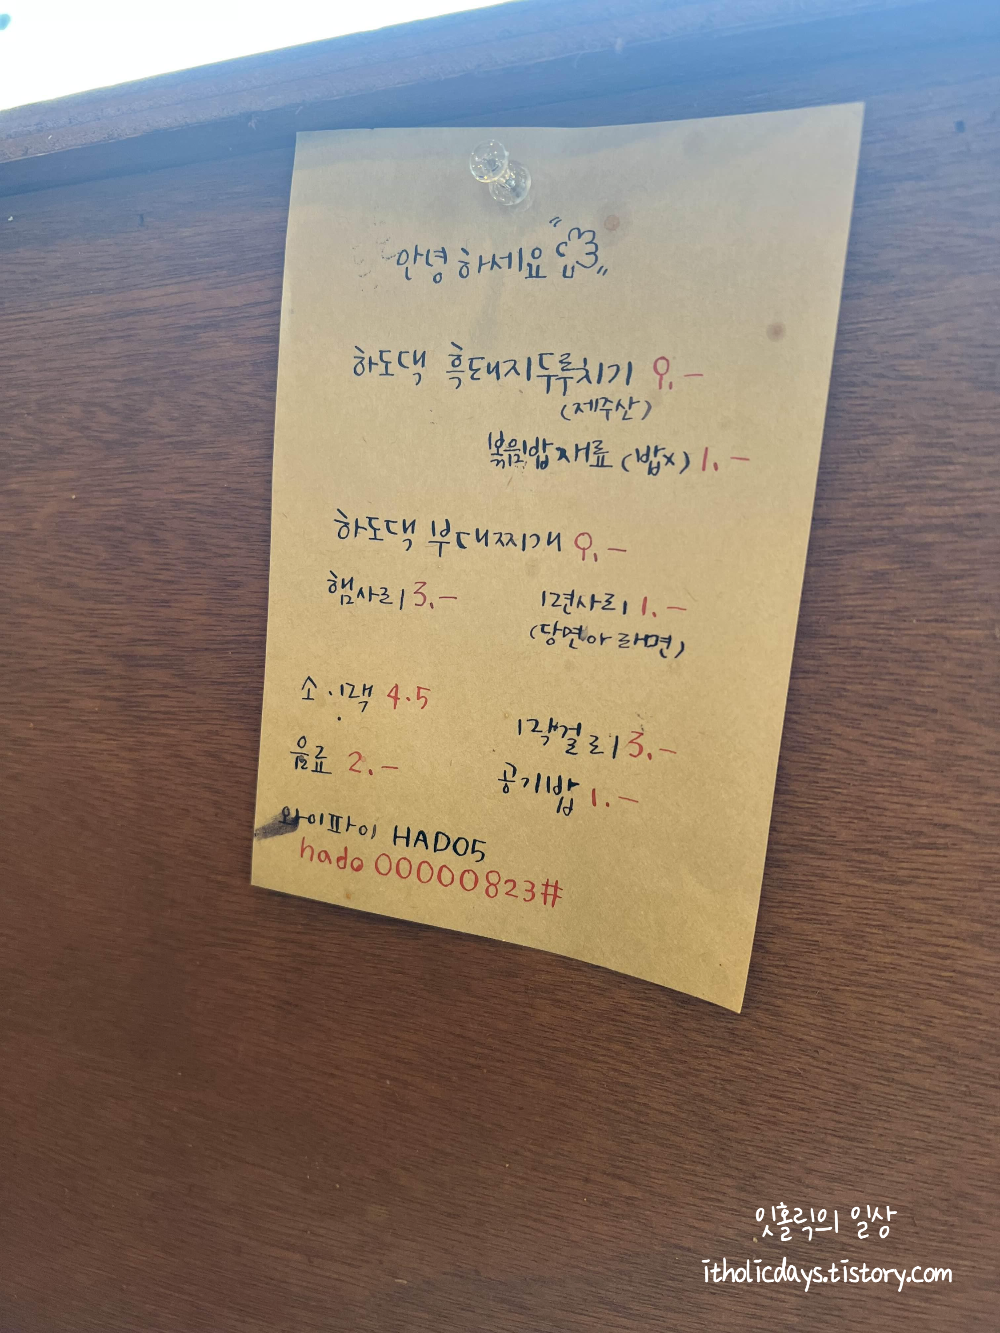 안녕하세요
하도댁 흑돼지두루치기 9.-
(제주산)
볶음밥재료 (밥x) 1.-
하도댁 부대찌개 9.-
햄사리 3.- 면사리 1.-
(당면아 라면)
소.맥 4.5
막걸리 3.-
음료 2.- 공기밥 1.-
와이파이 HADO5
hado00000823#
잇홀릭의 일상
itholicdays.tistory.com